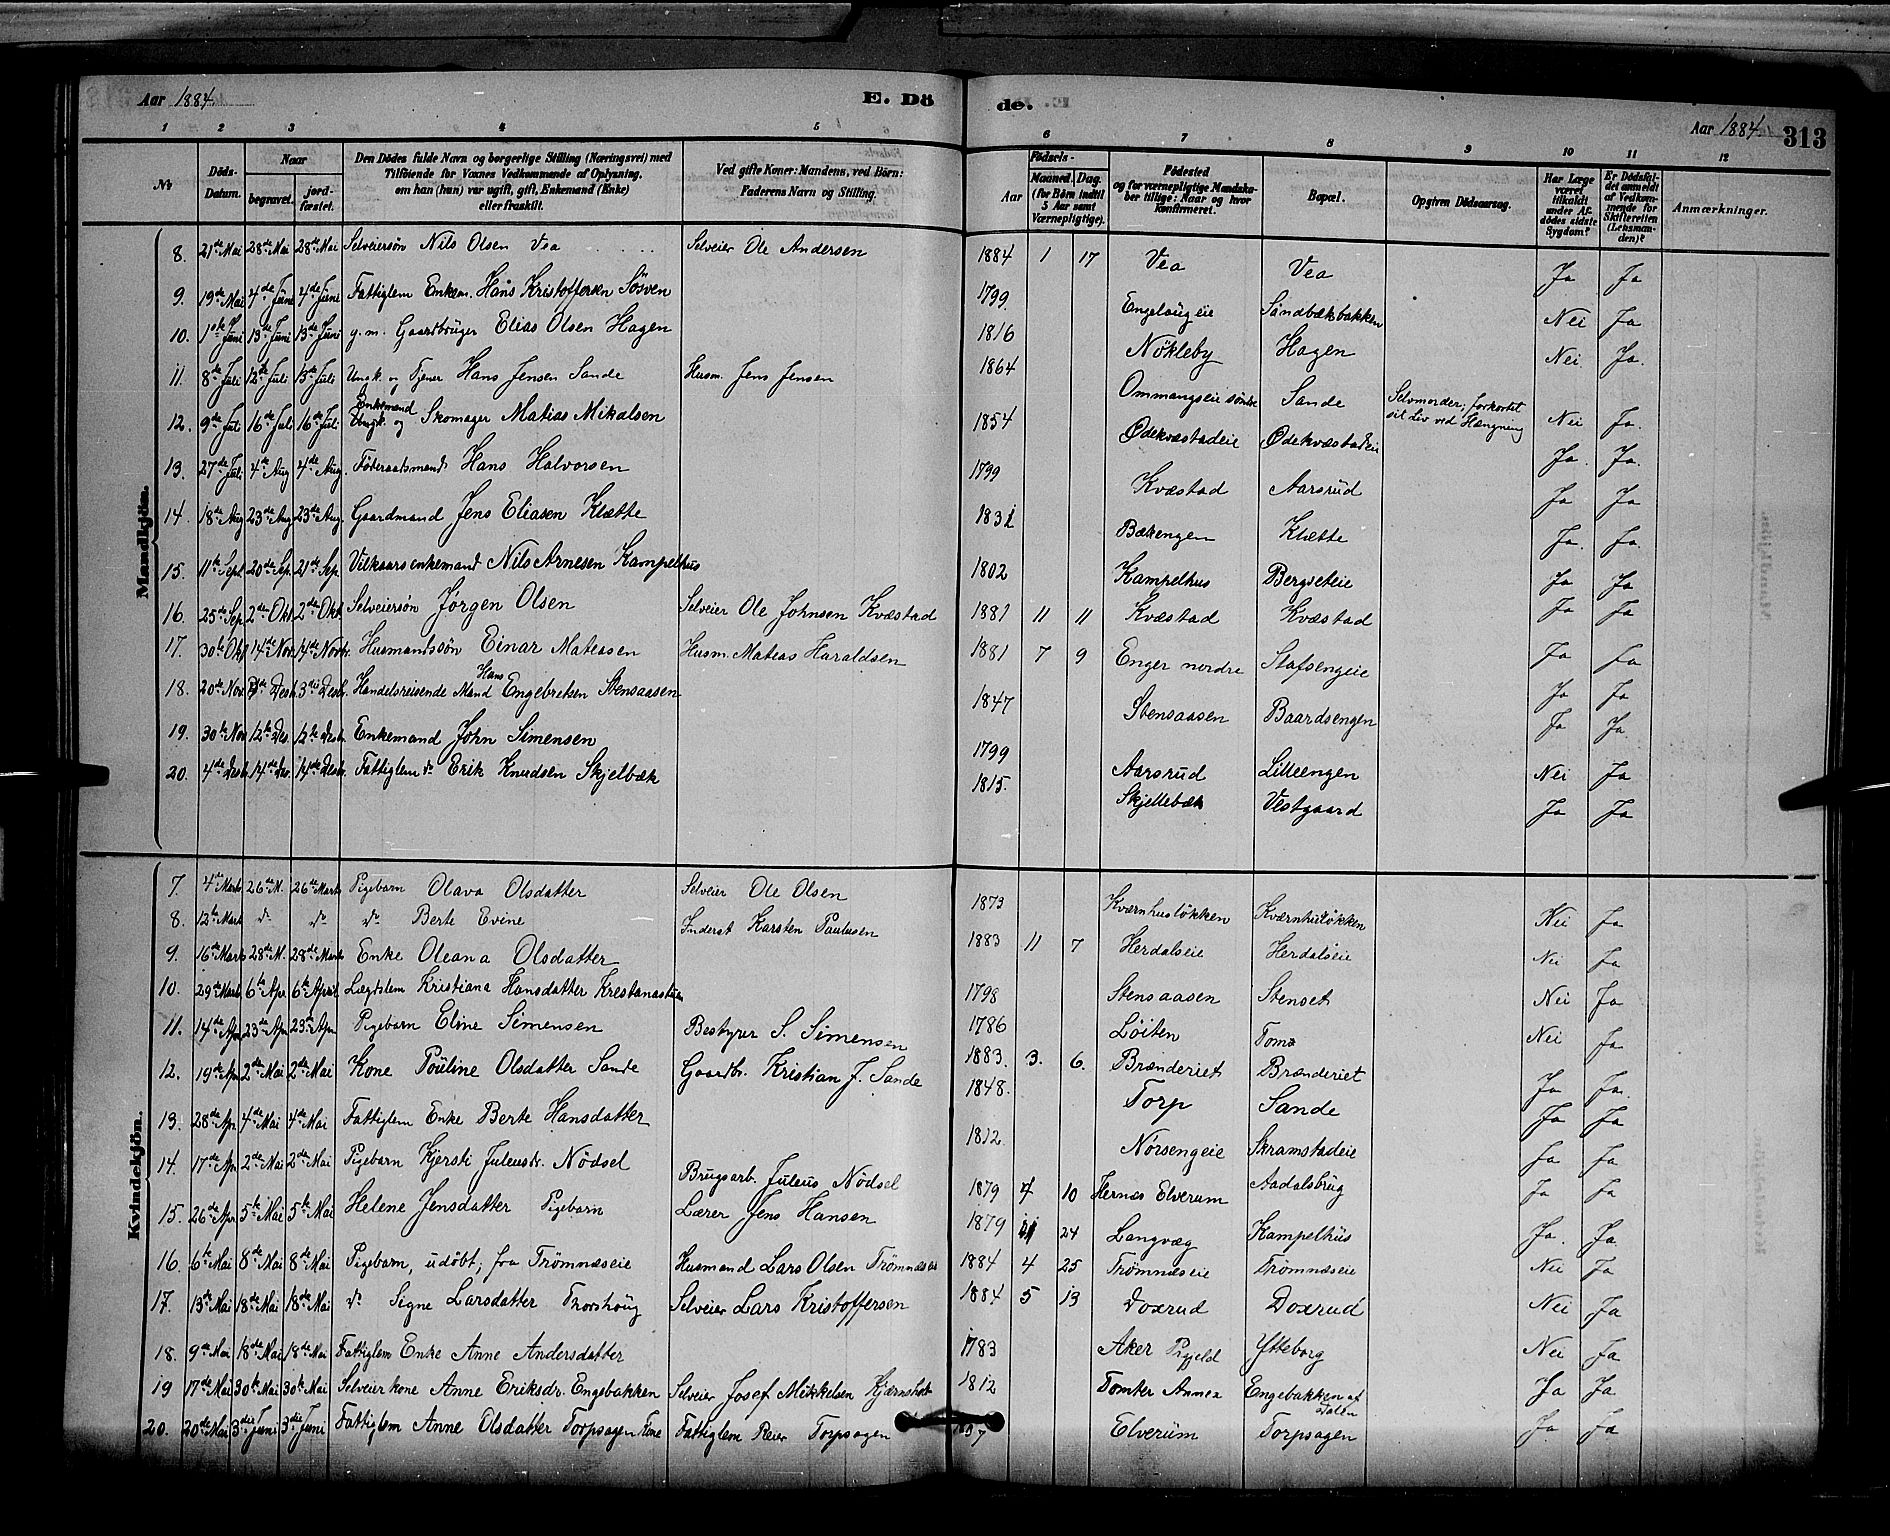 Aar 1884. E. Dö de. Aar 1884. 313
1 2 3 4 5 6 7 8 9 10 11 12
No Döds-Datum. Naar begravet. jord-fæstet. Den Dödes fulde Navn og borgerlige Stilling (Næringsvei) med Tilföiende for Voxnes Vedkommende af Oplysning, om han (hun) var ugift, gift, Enkemand (Enke) eller fraskilt. Ved gifte Koner: Mandens, ved Börn: Faderens Navn og Stilling. Födsels- Aar Maaned. Dag. (for Börn indtil 5 Aar samt Værnepligtige). Födested og for værnepligtige Mandskaber tillige: Naar og hvor konfirmeret. Bopæl. Opgiven Dödsaarsag. Har Læge været tilkaldt under Afdödes sidste Sygdom? Er Dödsfaldet anmeldt af Vedkommende for Skifteretten (Lensmanden)? Anmærkninger.
Mandkjön.
8. 21de Mai 28de Mai 28de Mai Selveiersön Nils Olsen Vea Selveier Ole Andersen 1884 1 17 Vea Vea Ja Ja
9. 19de Mai 4de Juni 4de Juni Fattiglem Enkem. Hans Kristoffersen Sösven 1799. Engelaugeie Sandbækbakken Nei Ja
10. 1ste Juni 13de Juni 13de Juni g. m. Gaardbruger Elias Olsen Hagen 1816 Nökleby Hagen Nei Ja.
11. 8de Juli 12te Juli 13de Juli Ungk. og Tjener Hans Jensen Sande Husm. Jens Jensen 1864 Ommangseie söndre Sande Selvmorder; forkortet sit Liv ved Hængning Nei Ja.
12. 9de Juli 16de Juli 16de Juli Enkemand Ungk. og Skomager Matias Mikalsen 1854 Ødekvæstadeie Ødekvæstadeie Ja. Ja.
13. 27de Juli 4de Aug 4de Aug. Föderaadsmand Hans Halvorsen 1799 Kvæstad Aarsrud Ja Ja
14. 18de Aug 23de Aug 23de Aug. Gaardmand Jens Eliasen Klætte 1831 Bækengen Klætte Ja. Ja.
15. 11te Sept 20de Sep. 21de Sep. Vilkaarsenkemand Nils Arnesen Kampelhus 1802 Kampelhus Bergseteie Ja Ja
16. 25de Sep. 2de Okt. 2de Okt. Selveiersön Jørgen Olsen Selveier Ole Johnsen Kvæstad 1881 11 11 Kvæstad Kvæstad Ja Ja
17. 30te Okt 14de Nov. 14de Novbr. Husmandssön Einar Mateasen Husm. Mateas Haraldsen 1881 7 9 Enger nordre Stafsengeie Ja Ja
18. 20de Nov. 3die Desb. 3die Desb. Handelsreisende Mand Hans Engebretsen Stensaasen 1847 Stensaasen Baardsengen Ja Ja
19. 30te Nov 12te Des. 12te Desb. Enkemand John Simensen 1799 Aarsrud Lilleengen Ja Ja
20. 4de Desb. 14de Des. 14de Desb. Fattiglem do Erik Knudsen Skjelbæk 1815. Skjellebæk Vestgaard Nei Ja
Ja Ja
Kvindekjön.
7. 4de Marts 26de M. 26de Marts Pigebarn Olava Olsdatter Selveier Ole Olsen 1873 Kværnhusløkken Kværnhusløkken Nei Ja
8. 12te Marts do do do Berte Evine Inderst Karsten Paulusen 1883 11 7 Herdalseie Herdalseie Nei Ja
9. 16de Marts 28de M. 28de Marts Enke Oleana Olsdatter 1798 Stensaasen Stenset Nei Ja
10. 29de Marts 6te Apr. 6te April Lægdslem Kristiana Hansdatter 1786 Löiten Nei Ja
11. 14de Apr 23de Apr 23de Apr Pigebarn Eline Simensen Bestyrer S. Simensen 1883. 3. 6. Brænderiet Brænderiet Ja Ja.
12. 19de Apr 2de Mai 2de Mai Kone Pouline Olsdatter Sande Gaardbr. Kristian J. Sande 1848. Torp Sande Ja Ja
13. 28de Apr 4de Mai 4de Mai Fattiglem Enke Berte Hansdatter 1812. Nørsengeie Skramstadeie Ja Ja
14. 17de Apr 2de Mai 2de Mai Pigebarn Kjersti Juleusdr. Nödsel Brugsarb. Juleus Nödsel 1879 7 10 Hernes Elverum Aadalsbrug Ja Ja
15. 26de Apr 5te Mai 5te Mai Helene Jensdatter Pigebarn Lærer Jens Hansen 1879 11 24 Langvæg Kampelhus Ja. Ja
16. 6te Mai 8de Mai 8de Mai Pigebarn, udöbt, fra Trömnæseie Husmand Lars Olsen Trömnæseie 1884 4 25 Trömnæseie Trömnæseie Nei Ja
17. 13de Mai 18de Mai 18de Mai do Signe Larsdatter Thorshoug Selveier Lars Kristoffersen 1884 5 13 Doxrud Doxrud Nei Ja
18. 9de Mai 18de Mai 18de Mai Fattiglem Enke Anne Andersdatter 1783 Aker Prgjeld Ytteborg Nei Ja
19 17de Mai 30te Mai 30te Mai Selveierkone Anne Eriksdr. Engebakken Selveier Josef Mikkelsen 1812 Tomter Annex Engebakken af Dalen Ja Ja
20. 20de Mai 3die Juni 3die Juni Fattiglem Anne Olsdatter Torpsagen Fattiglem Peier Torpsagen Elverum Torpsagen Ja Ja